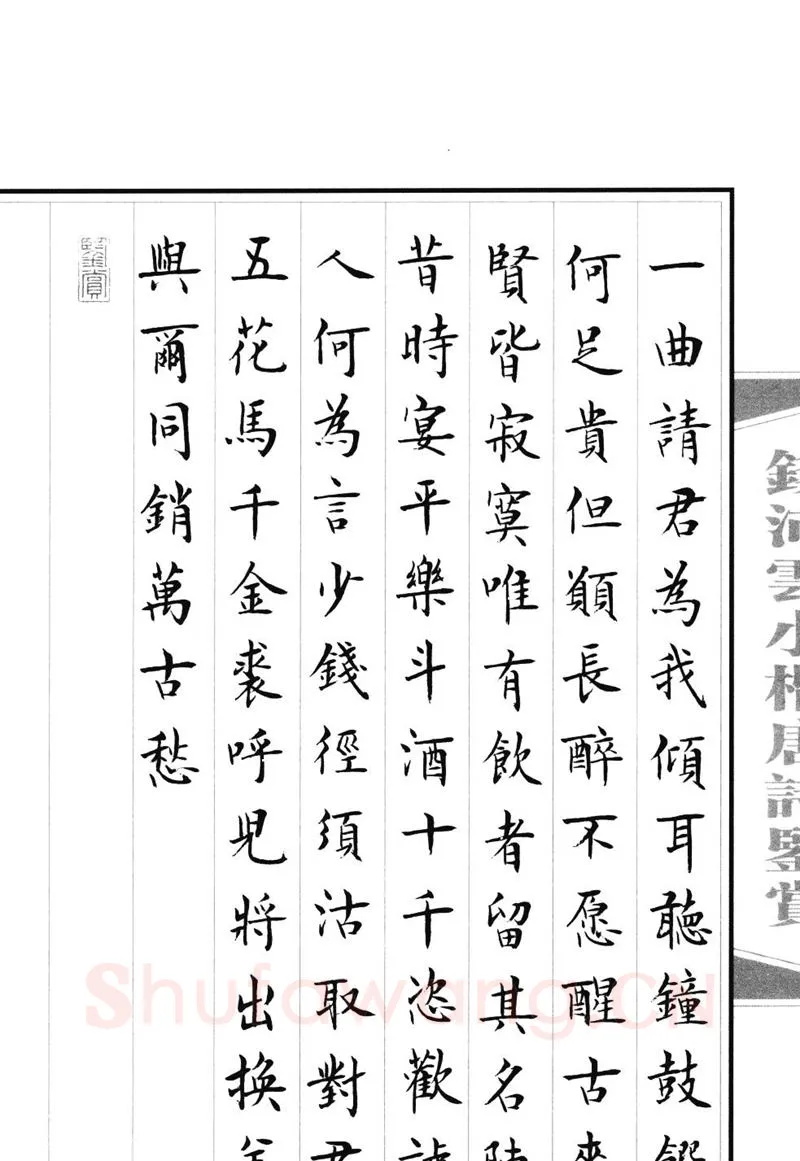 一曲請君為我傾耳聽鐘鼓饌
何足貴但願長醉不愿醒古來
賢皆寂寞唯有飲者留其名陳
昔時宴平樂斗酒十千恣歡謔
人何為言少錢徑須沽取對君
五花馬千金裘呼兒將出換美
與爾同銷萬古愁
鑒賞
錢沛雲小楷唐詩鑒賞
Shufawang.CN